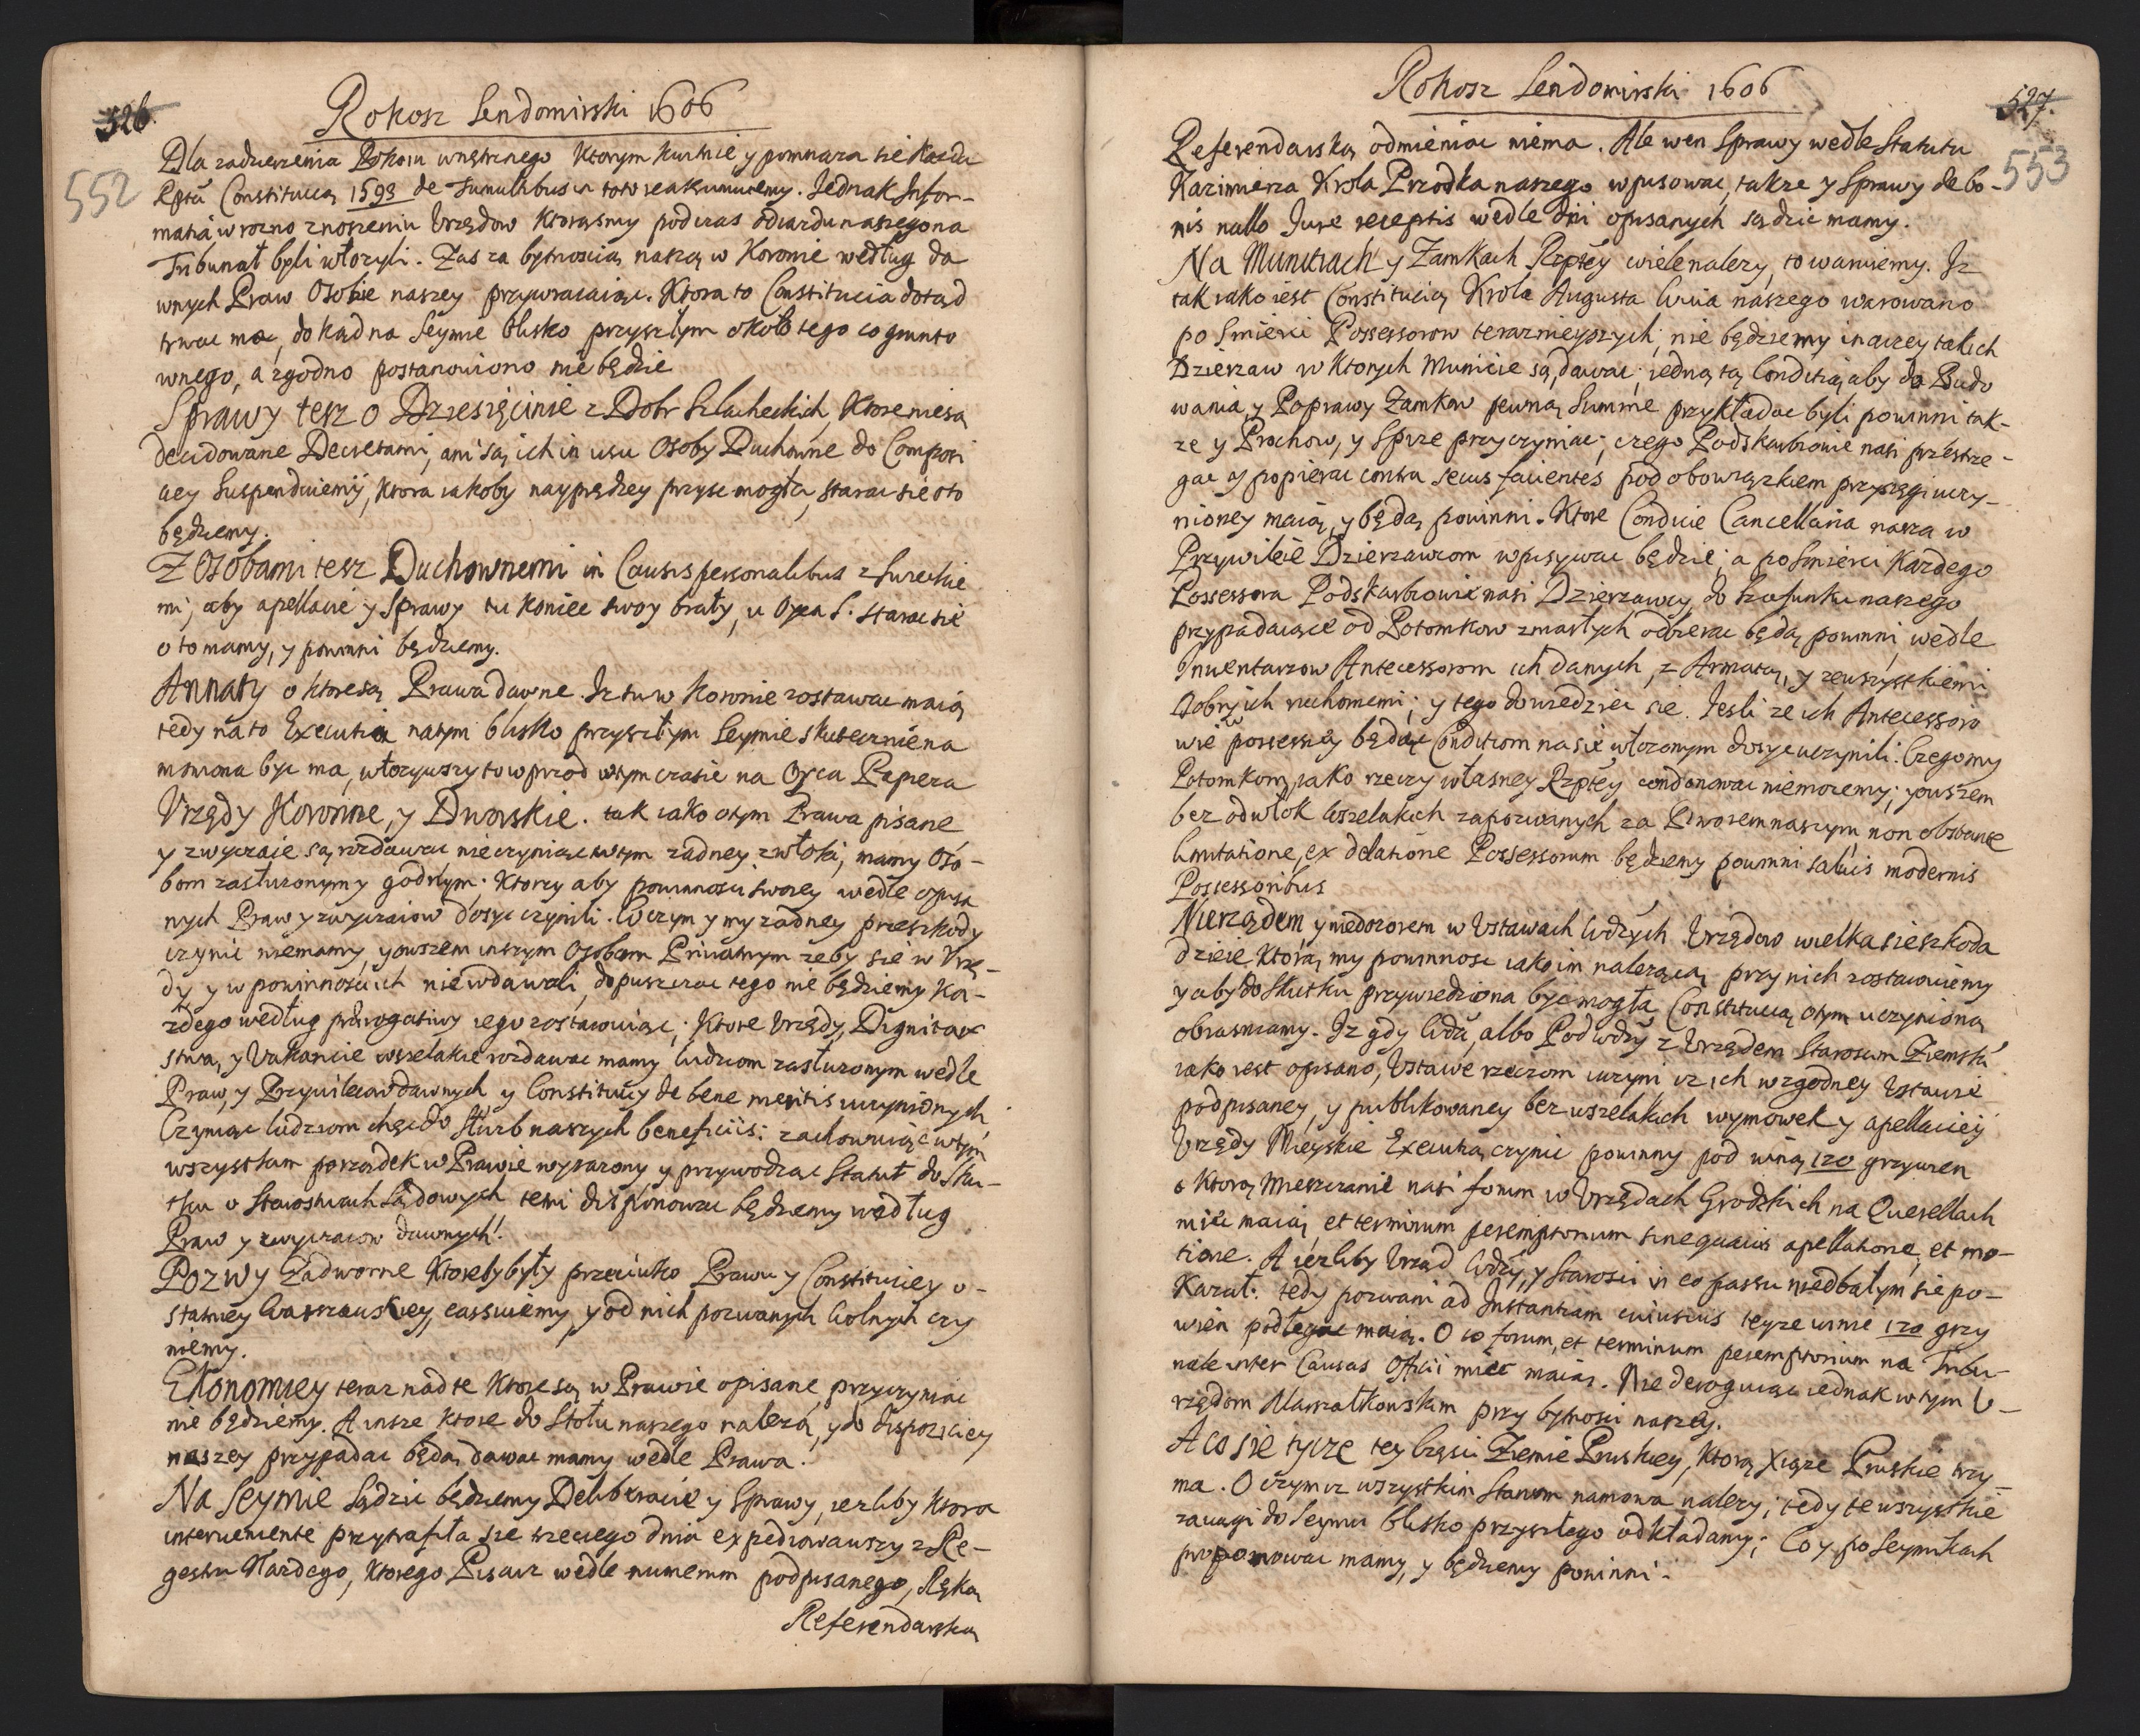 526.
552
Rokosz Sendomirski 1606
Dla zadzierzenia Pokoiu wnętrznego ktorym kwitnie y pomnaza sie kazda
Rpta Constitucią 1593 de tumultibus in toto reassumuiemy. Jednak Infor-
matią w rozno znoszeniu Urzędow ktorąsmy podczas odiazdu naszego na
Tribunał byli włozyli. Zas za bytnoscią naszą w Koronie według da
wnych Praw Osobie naszey przywracaiąc. Ktora to Constitucia dotąd
trwac ma, dokąd na Seymie blisko przyszłym około tego co grunto
wnego, a zgodno postanowiono nie będzie
Sprawy tesz o Dziesięcinie z Dobr Szlacheckich, ktore niesą
decidowane Decretami, ani są ich in usu Osoby Duchowne do Compozi
cyey Suspenduiemy, ktora iakoby nayprędzey przysc mogła, starac sie o to
będziemy.
Z Osobami tesz Duchownemi in Causis personalibus z Swieckie
mi, aby apellacie y Sprawy tu koniec swoy brały, u Oyca S. starac sie
o to mamy, y powinni będziemy.
Annaty o ktore są Prawa dawne. Iz tu w Koronie zostawac maią
tedy na to Executia natym blisko przyszłym Seymie skutecznie na
mowiona byc ma, włozywszy to wprzod wtym czasie na Oyca Papieza
Vrzędy Koronne, y Dworskie. tak iako otym Prawa pisane
y zwyczaie są, rozdawac nieczyniąc wtym zadney zwłoki, mamy Oso-
bom zasłuzonym y godnym. Ktorzy aby powinnosci swoiey wedle opisa
nych Praw y zwyczaiow dosyc czynili. W czym y my zadney przeszkody
czynic niemamy, yowszem inszym Osobom Priuatnym zeby sie w Vrzę-
dy y w powinnosci ich niewdawali, dopuszczac tego nie będziemy ka-
zdego według prærogatiwy iego zostawuiąc; Ktore Vrzędy, Dignitar
stwa, y Vakancie wszelakie rozdawac mamy ludziom zasłuzonym wedle
Praw, y Przywileiow dawnych y Constitucÿ de bene meritis uczynionych,
Czyniąc ludziom chęc do słuzb naszych beneficÿs: zachowuiąc wtym
wszystkim porządek w Prawie wyrazony y przywodząc Statut do sku-
tku o Starostwach Sądowych, temi disponowac będziemy według
Praw y zwyczaiow dawnych.
Pozwy Zadworne ktoreby były przeciwko Prawu y Constituciey o-
statniey Warszawskiey, cassuiemy, y od nich pozwanych wolnych czy
niemy.
Ekonomiey teraz nad te ktore są w Prawie opisane, przyczyniac
nie będziemy. A insze ktore do Stołu naszego nalezą, y do dispozyciey
naszey przypadac będą, dawac mamy wedle Prawa.
Na Seymie Sądzic będziemy Deliberacie y Sprawy, iezliby ktora
interveniente przytrafiła sie trzeciego dnia expediowawszy z Re-
gestru kazdego, ktorego Pisarz wedle numerum podpisanego, Ręką
Referendarską
527.
553
Rokosz Sendomirski 1606
Referendarską odmieniac niema. Ale wen Sprawy wedle Statutu
Kazimierza Krola Przodka naszego wpisowac, takze y Sprawy de bo-
nis nullo Jure receptis wedle dni opisanych sądzic mamy.
Na Municiach y Zamkach Rzptey wiele nalezy, to waruiemy. Iz
tak iako iest Constitucią Krola Augusta Wuia naszego warowano
po smierci Possessorow teraznieyszych, nie będziemy inaczey takich
Dzierzaw w ktorych Municie są, dawac, iedną tą Conditią, aby do Budo
wania, y Poprawy Zamkow pewną Summę przykładac byli powinni tak-
ze y Prochow, y Spize przyczyniac; czego Podskarbiowie nasi przestrze-
gac y popierac contra secus facientes pod obowiązkiem przysięgi uczy-
nioney maią, y będą powinni. Ktore Condicie Cancellaria nasza w
Przywileie Dzierzawcom wpisywac będzie; a po smierci kazdego
Possessora Podskarbiowie nasi Dzierzawy, do szafunku naszego
przypadaiące od Potomkow zmarłych odbierac będą powinni, wedle
Inwentarzow Antecessorom ich danych, z Armatą, y zewszystkiemi
Dobry ich ruchomemi; y tego dowiedziec sie. Iesli ze ich Antecesso­ro
wie w possessiey będąc Conditiom nasię włozonym dosyc uczynili. Czego my
Potomkom, iako rzeczy własney Rzptey condonowac niemozemy, yowszem
bez odwłok wszelakich zapozwanych za Dworem naszym non obstante
limitatione, ex delatione Possessorum będziemy powinni saluis modernis
Possessoribus
Nierządem, y niedozorem w Ustawach Wdzych Urzędow wielka sie szkoda
dzieie, ktorą my powinnosc iako im nalezącą przy nich zostawuiemy
y aby do skutku przywiedziona byc mogła, Constitucią otym uczynioną
obiasniamy. Iz gdy Wda, albo Podwdzy z Urzędem Starosim Ziemski
iako iest opisano, Ustawe rzeczom uczyni iz ich wzgodney Ustawie
podpisaney, y publikowaney bez wszelakich wymowek y apellaciey
Urzędy Mieyskie Executią czynic powinny pod winą 120 grzywien
o ktorą Mieszczanie nasi forum w Urzędach Grodzkich na Querellach
miec maią, et terminum peremptorium sine quavis apellatione, et mo-
tione. A iezliby Urząd Wdzy, y Starosci in eo passu niedbałym sie po-
kazał: tedy pozwani ad Instantiam cuiusuis teyze winie 120 grzy
wien podlegac maią. O co forum, et terminum peremptorium na Tribu-
nale inter Causas Officii miec maią. Nie deroguiąc iednak wtym U-
rzędom Marszałkowskim przy bytnosci naszey.
A co sie tycze tey Częsci Ziemie Pruskiey, ktorą Xiąze Pruskie trzy-
ma. O czym iz wszystkim Stanom namowa nalezy; tedy te wszystkie
zaciągi do Seymu blisko przyszłego odkładamy; Co y po Seymikach
proponowac mamy, y będziemy powinni.